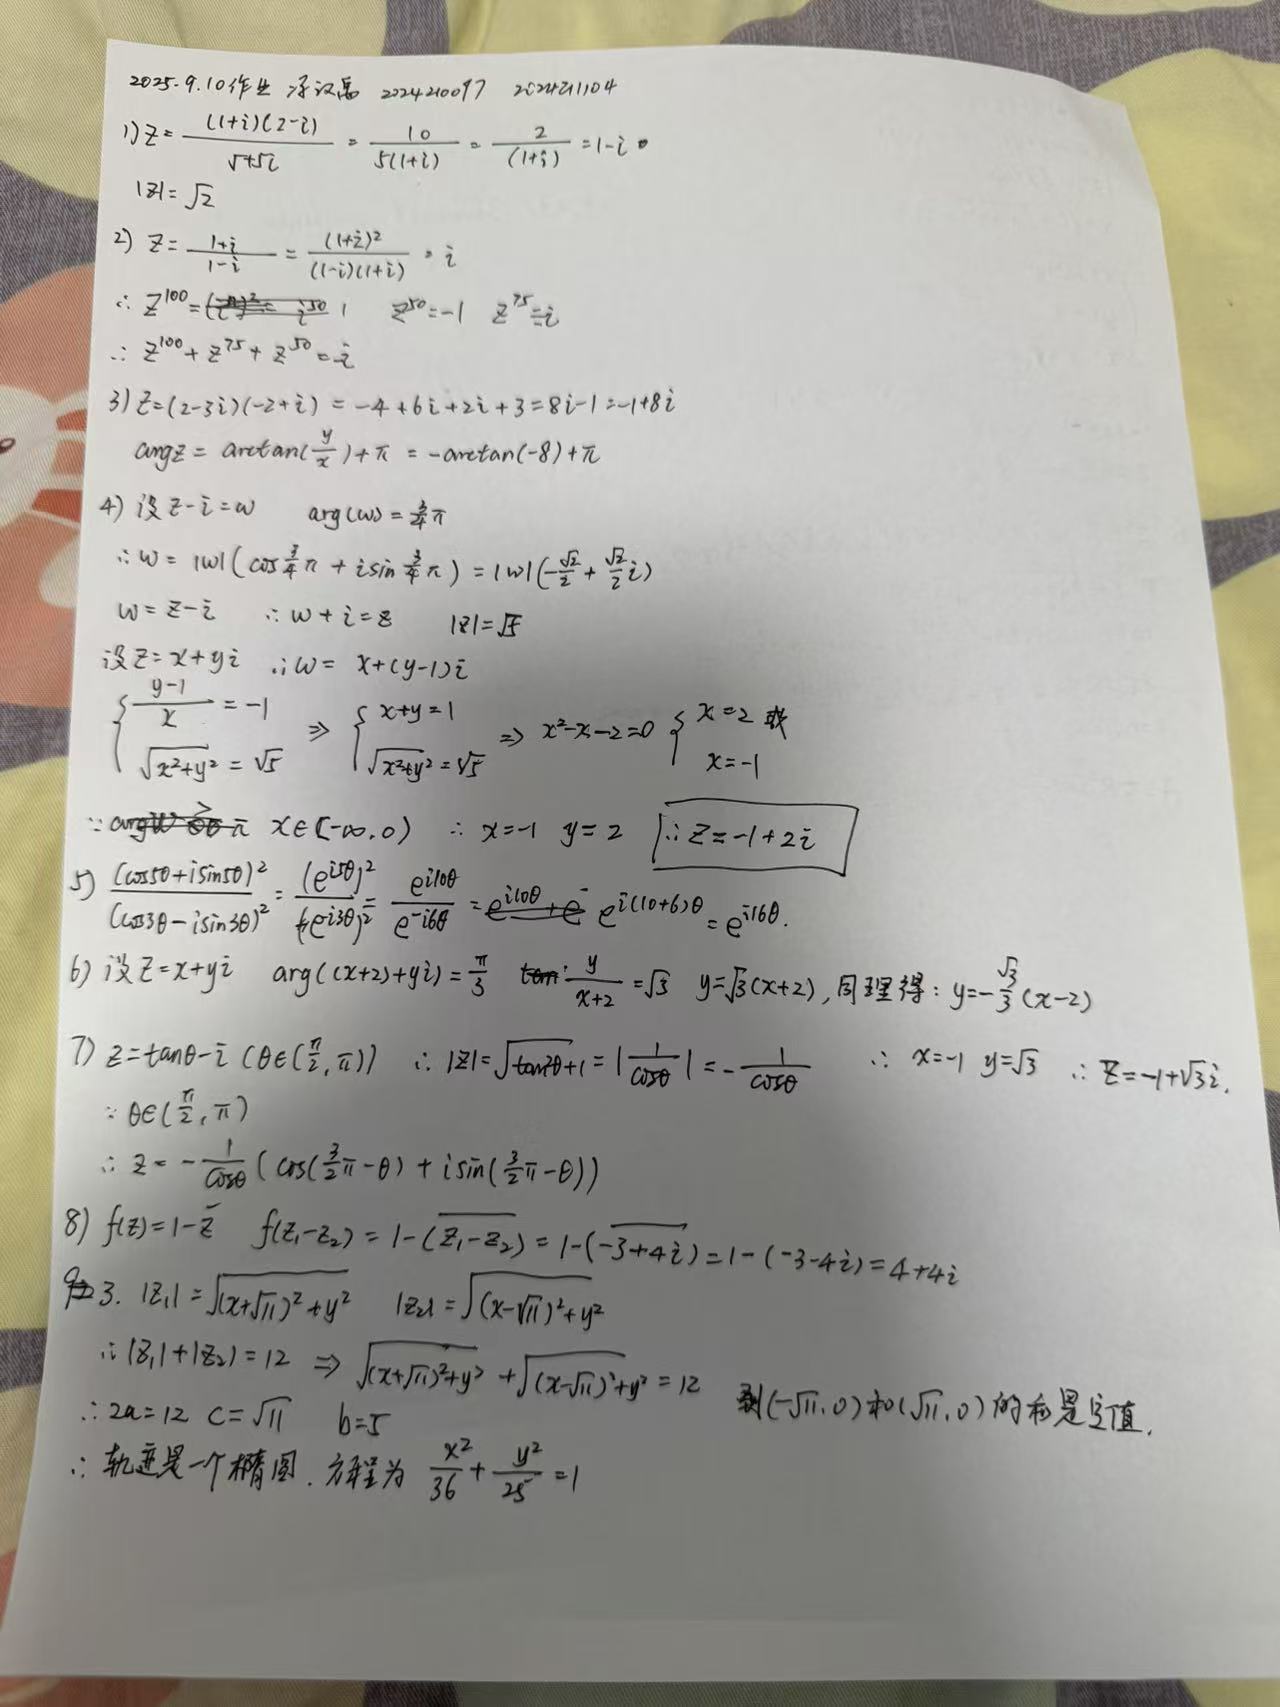 2025.9.10作业 2024210097 2024211104
1) z = \frac{(1+i)(2-i)}{5+5i} = \frac{10}{5(1+i)} = \frac{2}{(1+i)} = 1-i
|z| = √2
2) z = \frac{1+i}{1-i} = \frac{(1+i)^2}{(1-i)(1+i)} = i
∴ z^{100} = 1 z^{50} = -1 z^{75} = -i
∴ z^{100} + z^{75} + z^{50} = -i
3) z = (2-3i)(-2+i) = -4+6i+2i+3 = 8i-1 = -1+8i
argz = arctan(\frac{y}{x}) + π = -arctan(-8) + π
4) 设 z-i = w arg(w) = \frac{3}{4}π
∴ w = |w|(cos\frac{3}{4}π + i sin\frac{3}{4}π) = |w|(-\frac{√2}{2} + \frac{√2}{2}i)
w = z-i ∴ w+i = z |z| = √5
设 z = x+yi ∴ w = x+(y-1)i
{ \frac{y-1}{x} = -1, \sqrt{x^2+y^2} = √5 ⇒ { x+y=1, \sqrt{x^2+y^2} = √5 ⇒ x^2-x-2=0 { x=2 或 x=-1
∵ x∈(-∞,0) ∴ x=-1 y=2 ∴ z = -1+2i
5) \frac{(cos5θ+isin5θ)^2}{(cos3θ-isin3θ)^2} = \frac{(e^{i5θ})^2}{(e^{-i3θ})^2} = \frac{e^{i10θ}}{e^{-i6θ}} = e^{i(10+6)θ} = e^{i16θ}.
6) 设 z = x+yi arg((x+2)+yi) = \frac{π}{3} \frac{y}{x+2} = √3 y = √3(x+2), 同理得: y = -\frac{√3}{3}(x-2)
∴ x=-1 y=√3 ∴ z = -1+√3i.
7) z = tanθ-i (θ∈(\frac{π}{2}, π)) ∴ |z| = \sqrt{tan^2θ+1} = |\frac{1}{cosθ}| = -\frac{1}{cosθ}
∵ θ∈(\frac{π}{2}, π)
∴ z = -\frac{1}{cosθ}(cos(\frac{3}{2}π-θ) + i sin(\frac{3}{2}π-θ))
8) f(z) = 1-\bar{z} f(z_1-z_2) = 1-(\overline{z_1-z_2}) = 1-(\overline{-3+4i}) = 1-(-3-4i) = 4+4i
3. |z_1| = \sqrt{(x+√11)^2+y^2} |z_2| = \sqrt{(x-√11)^2+y^2}
∴ |z_1|+|z_2| = 12 ⇒ \sqrt{(x+√11)^2+y^2} + \sqrt{(x-√11)^2+y^2} = 12
到(-√11,0)和(√11,0)的和是定值.
∴ 2a=12 c=√11 b=5
∴ 轨迹是一个椭圆. 方程为 \frac{x^2}{36} + \frac{y^2}{25} = 1